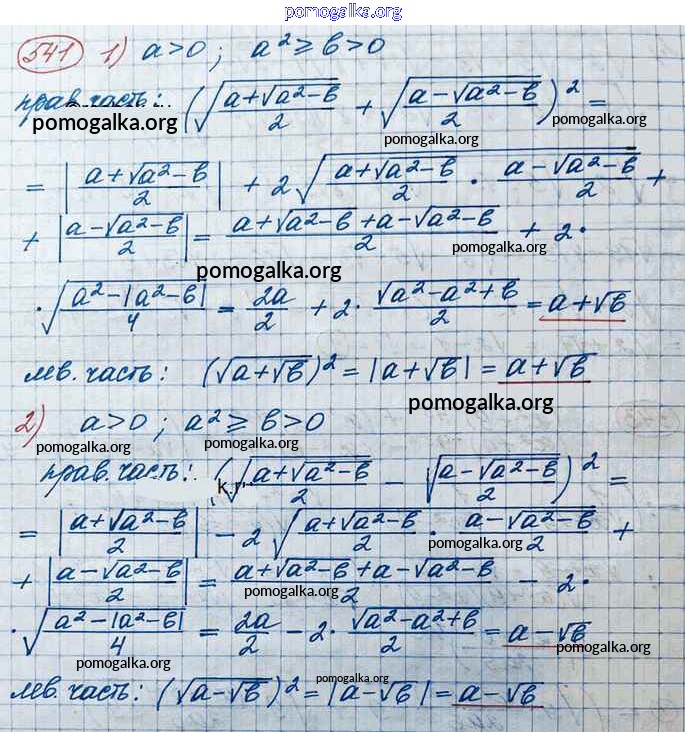 pomogalka.org
541 1) a>0; a²≥b>0
прав. часть: (√((a+√(a²-b))/2) + √((a-√(a²-b))/2))² =
pomogalka.org pomogalka.org pomogalka.org
= |(a+√(a²-b))/2| + 2√((a+√(a²-b))/2 · (a-√(a²-b))/2) +
+ |(a-√(a²-b))/2| = (a+√(a²-b)+a-√(a²-b))/2 + 2·
pomogalka.org
pomogalka.org
·√((a²-|a²-b|)/4) = 2a/2 + 2·√(a²-a²+b)/2 = a+√b
лев. часть: (√(a+√b))² = |a+√b| = a+√b
pomogalka.org
2) a>0; a²≥b>0
pomogalka.org pomogalka.org
прав. часть: (√((a+√(a²-b))/2) - √((a-√(a²-b))/2))² =
= |(a+√(a²-b))/2| - 2√((a+√(a²-b))/2 · (a-√(a²-b))/2) +
pomogalka.org
+ |(a-√(a²-b))/2| = (a+√(a²-b)+a-√(a²-b))/2 - 2·
pomogalka.org
·√((a²-|a²-b|)/4) = 2a/2 - 2·√(a²-a²+b)/2 = a-√b
pomogalka.org pomogalka.org
лев. часть: (√(a-√b))² = |a-√b| = a-√b
pomogalka.org
pomogalka.org